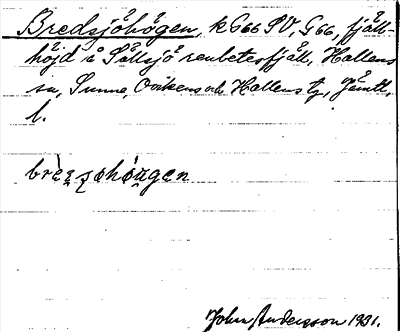 Bredsjöhögen, k G66 SV, G66, fjäll-
höjd å Sällsjö renbetesfjäll, Hallens
sn, Sunne, Ovikens och Hallens tg, Jämtl.
l.
John Andersson 1931.